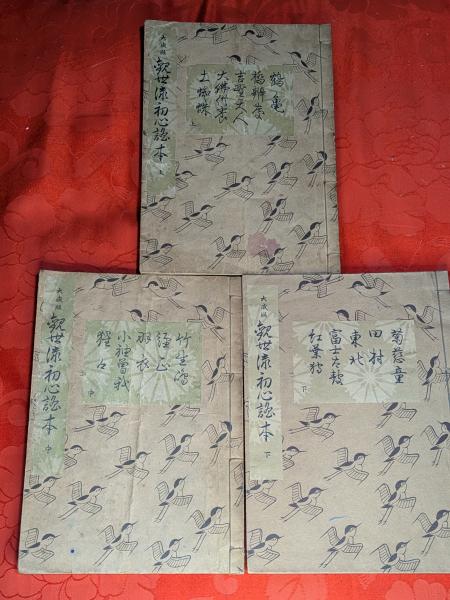 大成版 観世流初心謡本 上
鶴亀
橋辨慶
吉野天人
大佛供養
土蜘蛛
上
大成版 観世流初心謡本 中
竹生島
経正
羽衣
小袖曽我
猩々
中
大成版 観世流初心謡本 下
菊慈童
田村
東北
富士太鼓
紅葉狩
下